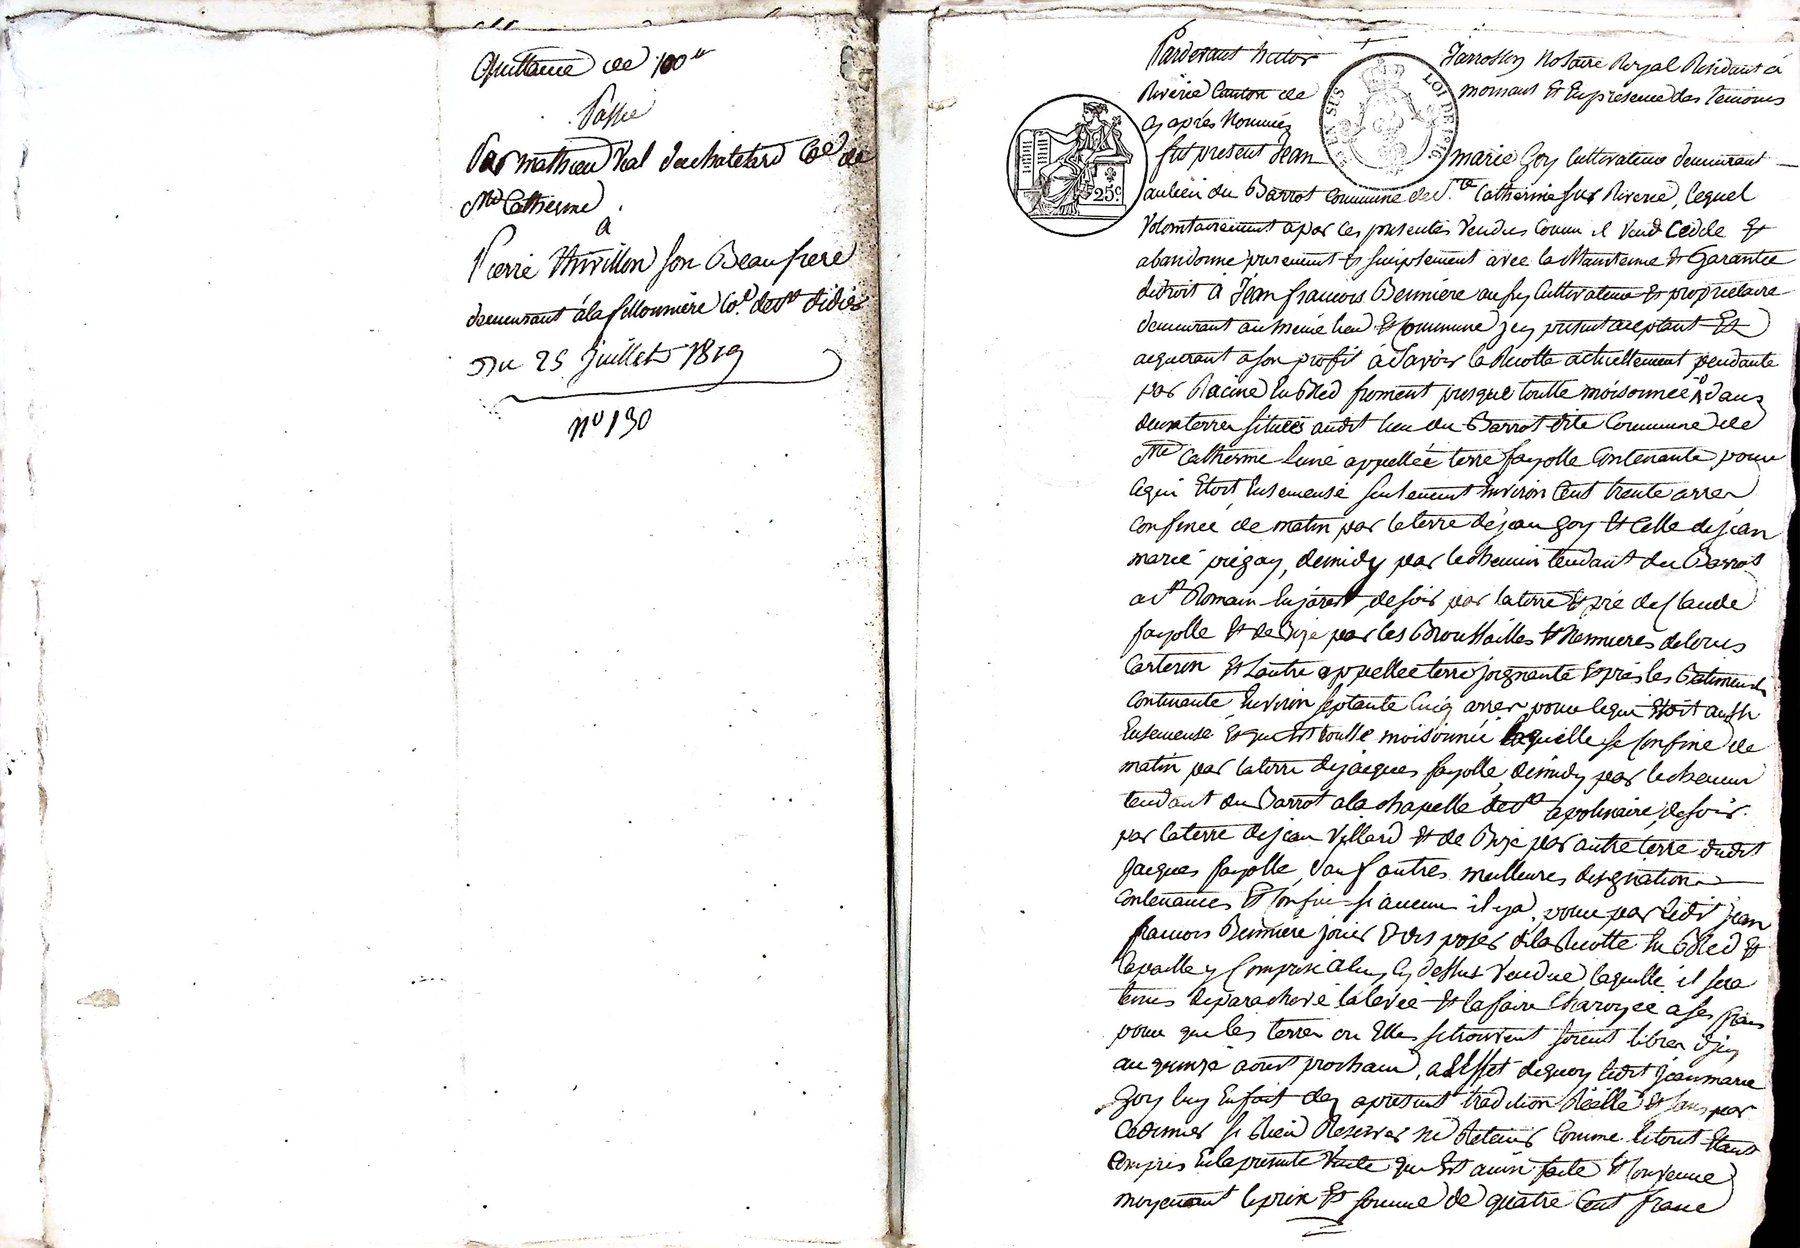 Quittance de 100 tt
Passé
Par mathieu Val duchatelard Coe de
Ste Catherine
a
Pierre Thivillon son Beaufrere
demeurant à la fillonnière Co. de St didier
Du 25 Juillet 1819
no 130
Pardevant Victor Jarrosson Notaire Royal Résidant à
Riverie Canton de mornant Et En présence des témoins
Cy après Nommés
25 c.
LOI DE 1816
fut présent Jean marie Goy Cultivateur demeurant
au lieu du Barrot Commune de Ste Catherine sur Riverie, lequel
Volontairement a par ces présentes Vendus comme il Vend Cédde Et
abandonne purement Et simplement avec la Maintenue Et Garantie
de droit à Jean françois Bernière aussy Cultivateur Et propriétaire
demeurant au même lieu Et Commune icy présent acceptant Et
acquerant a son profit à Savoir la Récolte actuellement pendante
par Racine En Bled froment presque toutte moisonnée dans
deux terres situées audit lieu du Barrot dite Commune de
Ste Catherine L'une appellée terre fayolle Contenante pour
ce qui Etoit Ensemensé seulement Environ Cent trente arres
Confinée de matin par la terre de jean Goy Et Celle de jean
marie piégay, de midy par le chemin tendant du Barrot
a St Romain En jarest, de soir par la terre Et pré de Claude
fayolle Et de Bize par les Broussailles Et hermieres de Louis
Carteron Et L'autre appellée terre joignante Et près les Batiments
Contenante Environ septante Cinq arres pour ce qui Etoit aussi
Ensemensé Et qui Est toutte moisonnée laquelle se Confine de
matin par la terre de jacques fayolle, de midy par le chemin
tendant du Barrot a la chapelle de St apolinaire, de soir
par la terre de jean Villard Et de Bize par autre terre dudit
Jacques fayolle, Sauf autres meilleures désignations
Contenances Et Confins si aucuns il y a, pour par ledit jean
françois Bernière jouir Et disposer de la Récolte En Bled Et
la paille y Comprise a luy Cy dessus Vendue, laquelle il sera
tenus de parachevé la levée Et la faire Charoyée a ses frais
pour que les terres ou Elles se trouvent soient libres d'icy
au quinze aout prochain, a L'Effet de quoy ledit jean marie
Goy luy En fait dès aprésent tradition Réelle Et sans par
Ce dernier se Rien Réserver ne Retenir Comme le tout Etant
Compris En la présente Vente qui Est ainsi faite Et Convenue
moyenant le prix Et somme de quatre Cent franc